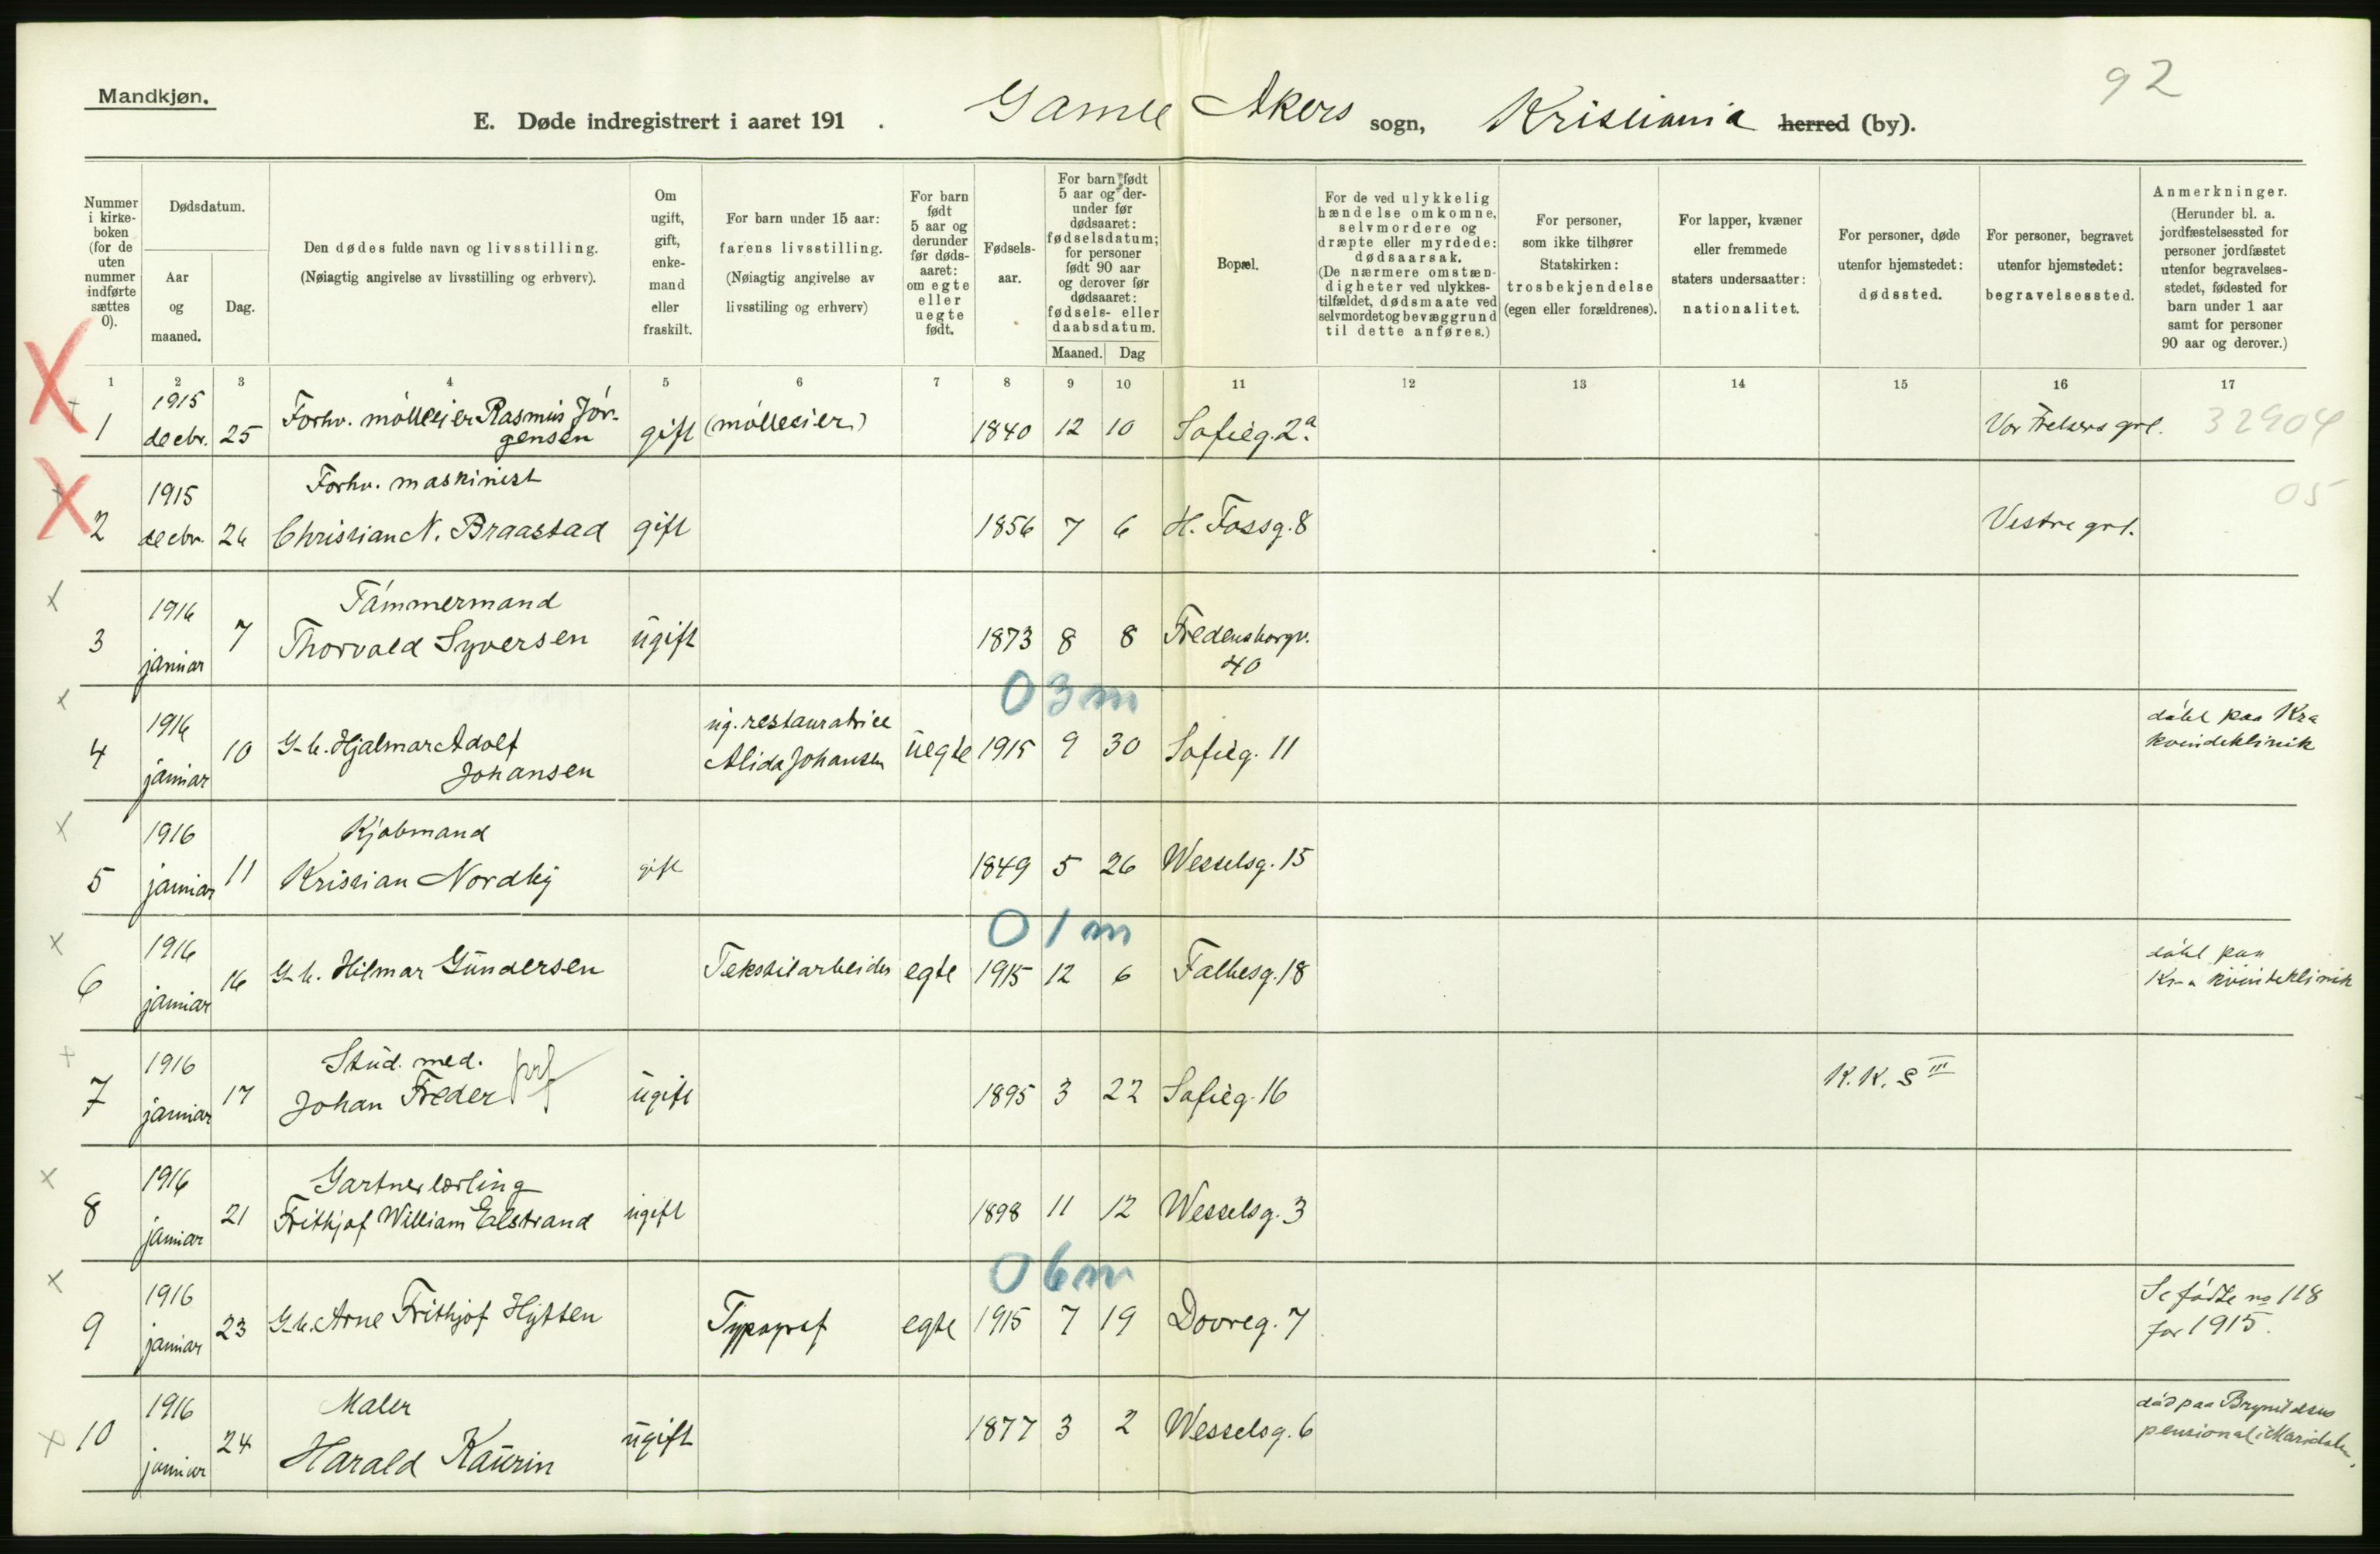 92
Mandkjøn.
E. Døde indregistrert i aaret 191 . Gamle Akers sogn, Kristiania herred (by).
Nummer i kirke- boken (for de uten nummer indførte sættes 0).
Dødsdatum.
Aar og maaned.
Dag.
Den dødes fulde navn og livsstilling.
(Nøiagtig angivelse av livsstilling og erhverv).
Om ugift, gift, enke- mand eller fraskilt.
For barn under 15 aar:
farens livsstilling.
(Nøiagtig angivelse av
livsstiling og erhverv)
For barn født 5 aar og derunder før døds- aaret: om egte eller uegte født.
Fødsels- aar.
For barn født 5 aar og der- under før dødsaaret: fødselsdatum; for personer født 90 aar og derover før dødsaaret: fødsels- eller daabsdatum.
Maaned. Dag
Bopæl.
For de ved ulykkelig hændelse omkomne, selvmordere og dræpte eller myrdede: dødsaarsak. (De nærmere omstæn- digheter ved ulykkes- tilfældet, dødsmaate ved selvmordet og bevæggrund til dette anføres.)
For personer, som ikke tilhører Statskirken: trosbekjendelse (egen eller forældrenes).
For lapper, kvæner eller fremmede staters undersaatter: nationalitet.
For personer, døde utenfor hjemstedet: dødssted.
For personer, begravet utenfor hjemstedet: begravelsessted.
Anmerkninger.
(Herunder bl. a. jordfæstelsessted for personer jordfæstet utenfor begravelses- stedet, fødested for barn under 1 aar samt for personer 90 aar og derover.)
1 2 3 4 5 6 7 8 9 10 11 12 13 14 15 16 17
1 1915 decbr. 25 Forhv. mølleeier Rasmus Jør-
gensen gift (mølleeier) 1840 12 10 Sofieg. 2a. Vor Frelsers grl. 32904
2 1915 decbr. 26 Forhv. maskinist
Christian N. Braastad gift 1856 7 6 H. Fossg. 8 Vestre grl. 05
3 1916 januar 7 Tømmermand
Thorvald Syversen ugift 1873 8 8 Fredensborgv.
40
03m
4 1916 januar 10 G-b. Hjalmar Adolf
Johansen ug. restauratrice
Alida Johansen uegte 1915 9 30 Sofieg. 11 døbt paa Kra
kvindeklinik
5 1916 januar 11 Kjøbmand
Kristian Nordby gift 1849 5 26 Wesselsg. 15
01m
6 1916 januar 16 G-b. Hilmar Gundersen Tekstilarbeider egte 1915 12 6 Falbesg. 18 døbt paa
Kr-a kvindeklinik
7 1916 januar 17 Stud. med.
Johan Freder ugift 1895 3 22 Sofieg. 16 K.K.S III
8 1916 januar 21 Gartnerlærling
Frithjof William Edstrand ugift 1898 11 12 Wesselsg. 3
06m
9 1916 januar 23 G-b. Arne Frithjof Hytten Typograf egte 1915 7 19 Dovreg. 7 Se fødte no 118
for 1915.
10 1916 januar 24 Maler
Harald Kaurin ugift 1877 3 2 Wesselsg. 6 død paa Brynildsens
pensionat i Maridalen.